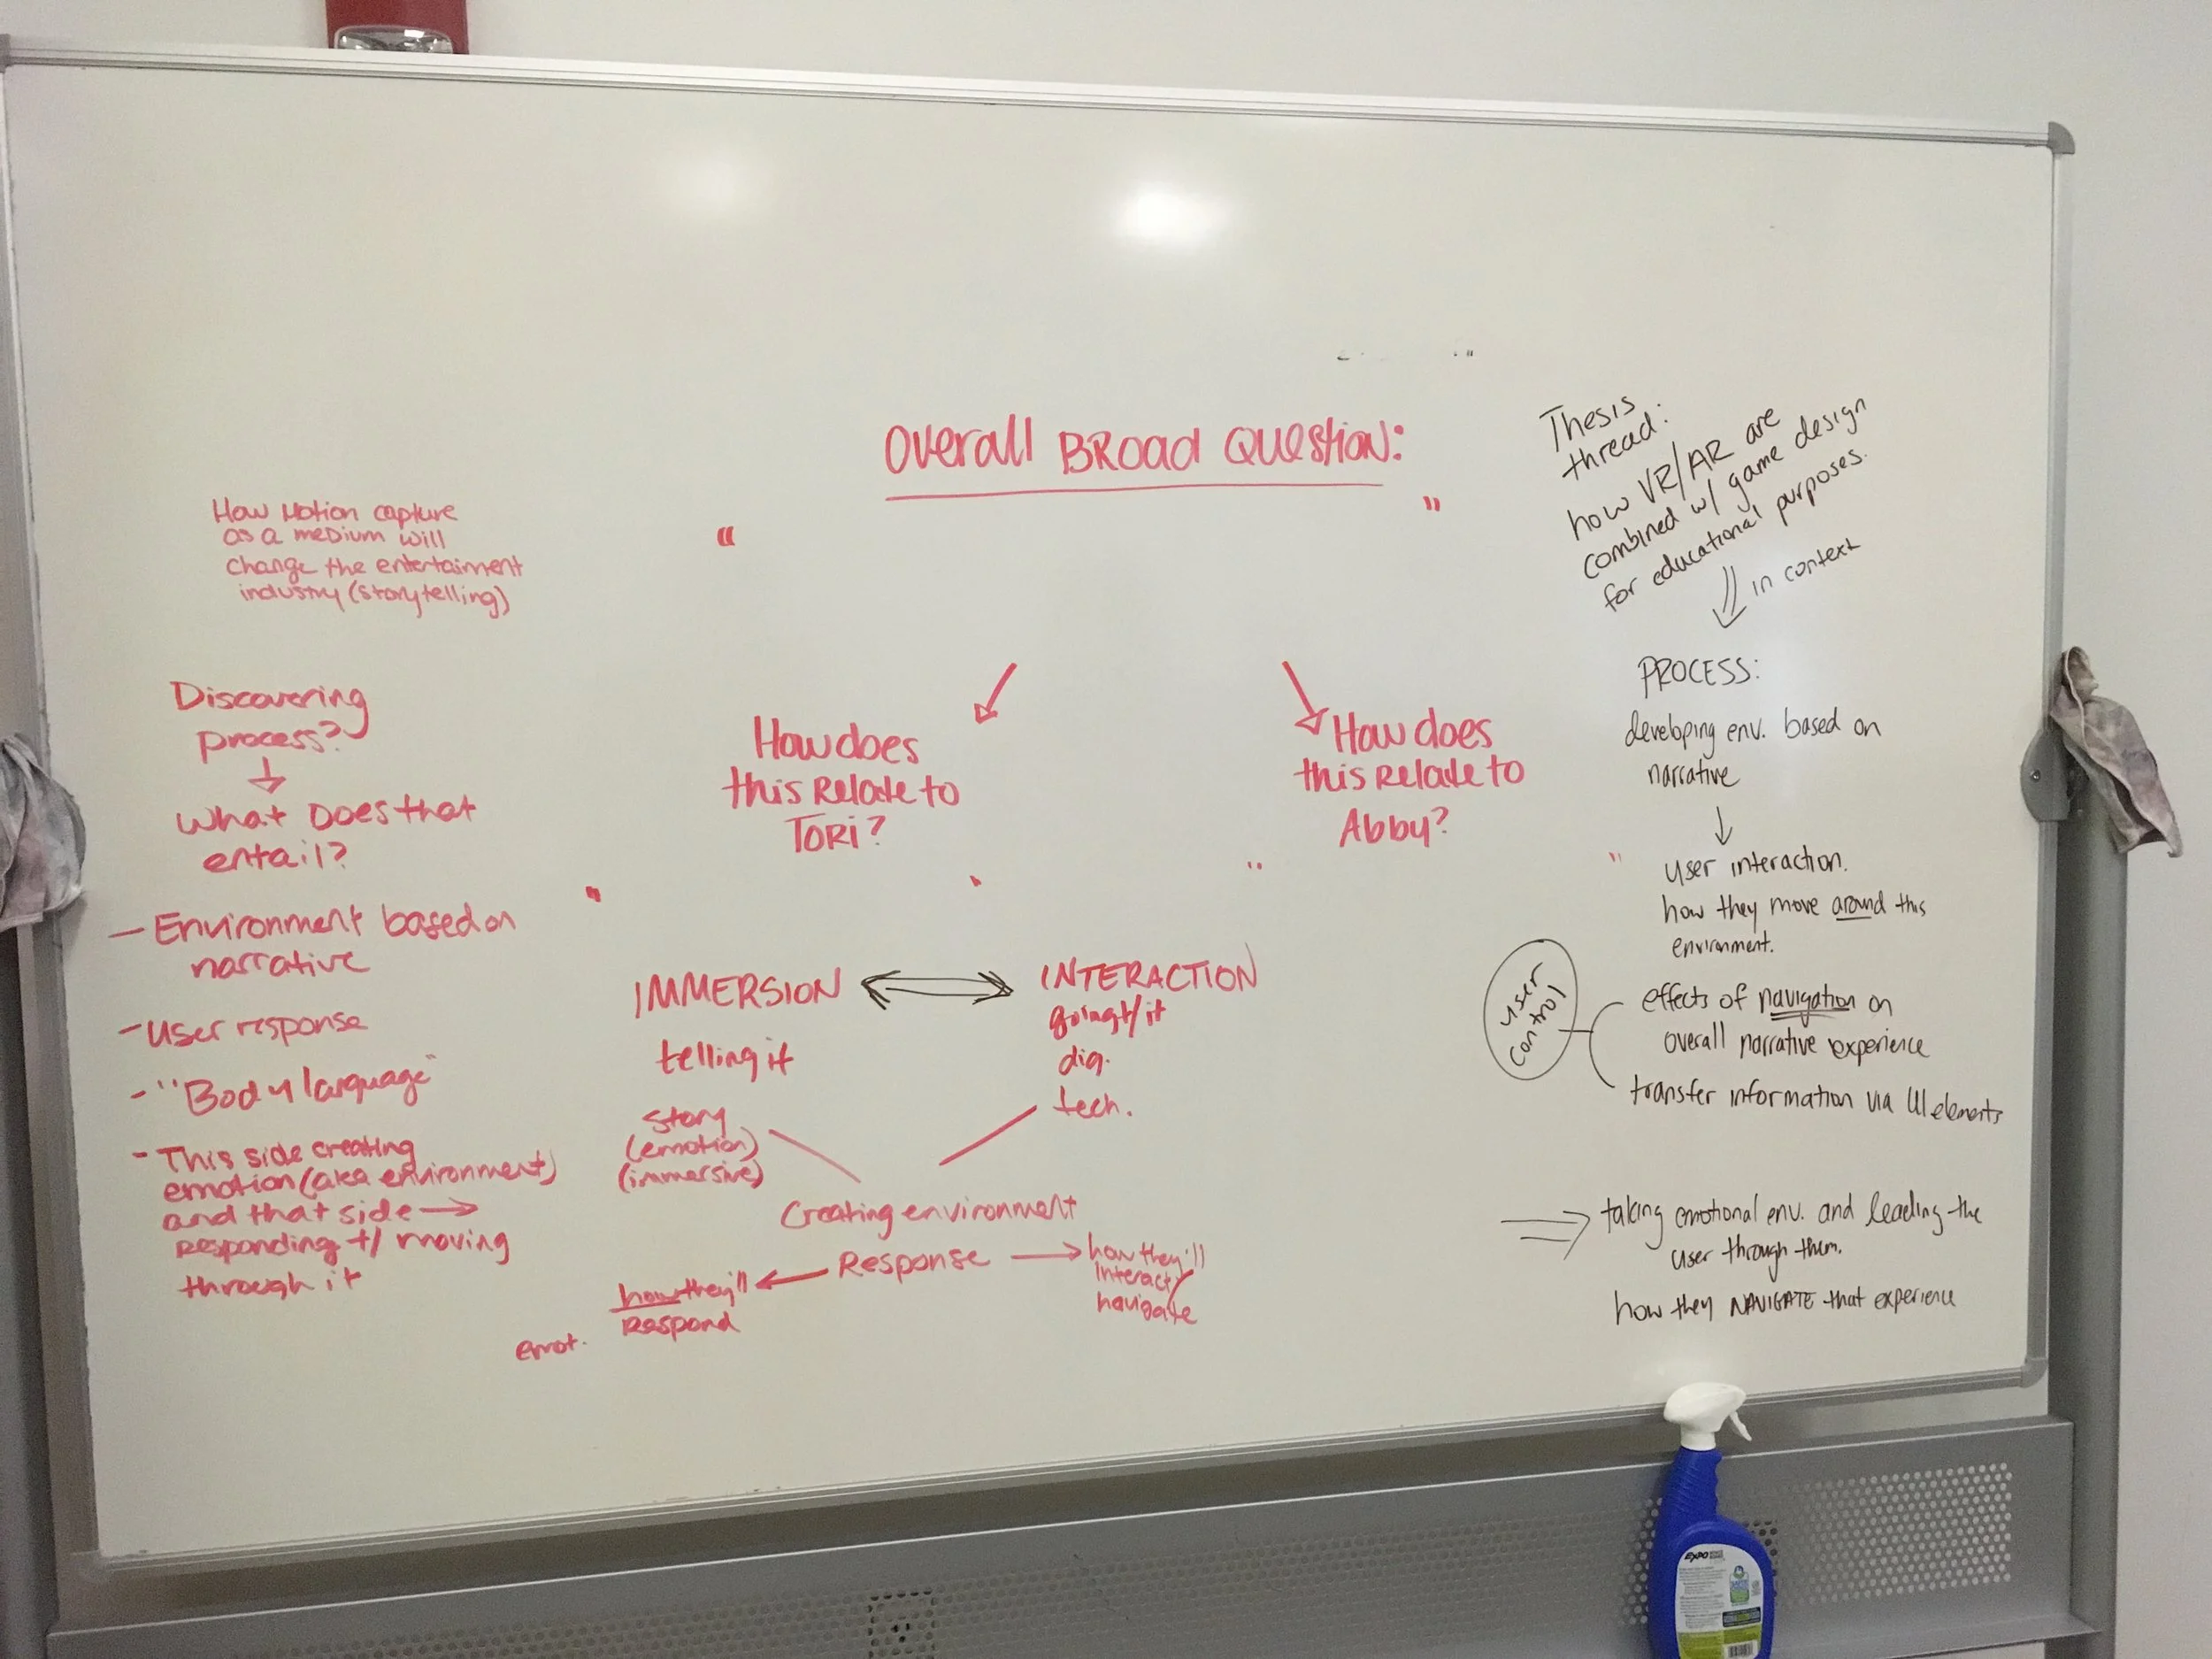 Overall BRoad Question:
"
"
How Motion capture
as a medium will
change the entertaiment
industry (storytelling)
Discovering
process?
What Does that
entail?
- Environment based on
narrative
- User response
- "Body language"
- This side creating
emotion (aka environment)
and that side
Responding t/ moving
through it
How does
this Relate to
TORi?
How does
this Relate to
Abby?
IMMERSION
telling it
story
(emotion)
(immersive)
INTERACTION
going t/ it
dig.
tech.
Creating environment
Response
how they'll
Respond
emot.
how they'll
Interact/
navigate
Thesis
thread:
how VR/AR are
combined w/ game design
for educational purposes.
in context
PROCESS:
developing env. based on
narrative
user interaction.
how they move around this
environment.
user
control
effects of navigation on
overall narrative experience
transfer information via UI elements
taking emotional env. and leading the
user through them.
how they NAVIGATE that experience
EXPO